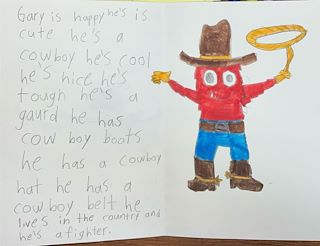 Gary is happy he's is
cute he's a
cowboy he's cool
he's nice he's
tough he's a
gaurd he has
cow boy boots
he has a cowboy
hat he has a
cowboy belt he
lives in the country and
he's a fighter.